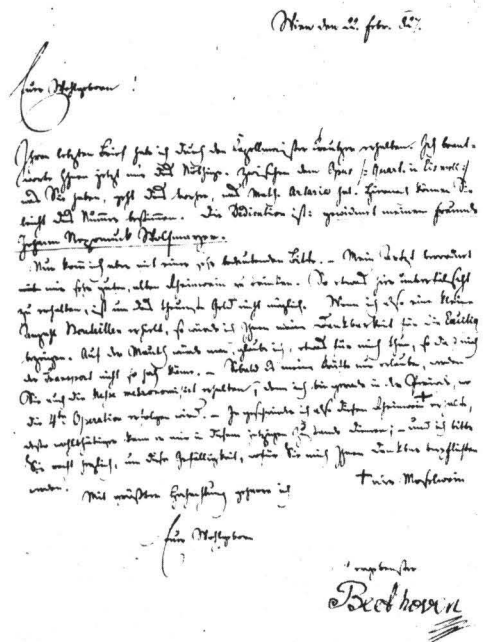 Wien den 22. Febr. 827.
Euer Wohlgeboren!
Ihren letzten Brief habe ich durch den Capellmeister Kreutzer erhalten. Ich beant-
worte Ihnen jetzt nur das Nöthige. Zwischen dem Opus Quart. in Cis moll
das Sie haben, geht das vorher, das Math. Artaria hat. Hiernach können Sie
leicht das Numero bestimmen. Die Dedication ist: gewidmet meinem Freunde
Johann Nepomuck Wolfmayer.
Nun komm ich aber mit einer sehr bedeutenden Bitte. – Mein Arzt verordnet
mir sehr guten, alten Rheinwein zu trinken. So etwas hier unverfälscht
zu erhalten, ist um das theuerste Geld nicht möglich. Wenn ich also eine kleine
Anzahl Bouteillen erhielt, so würde ich Ihnen meine Dankbarkeit für die Cäcilia
bezeigen. Auf der Mauth würde man, glaube ich, etwas für mich thun, so daß mich
der Transport nicht so hoch käme. – Sobald es meine Kräfte nur erlauben, werden
Sie auch die Messe metronomisirt erhalten, denn ich bin gerade in der Periode, wo
die 4te Operation erfolgen wird. – Je geschwinder ich also diesen Rheinwein †
desto wohlthätiger kann er mir in diesem jetzigen Zustande dienen; – und ich bitte
Sie recht herzlich, um diese Gefälligkeit, wofür Sie mich Ihnen dankbar verpflichten
werden.
† Moselwein
Mit größter Hochachtung geharre ich
Euer Wohlgeboren
ergebenster
Beethoven